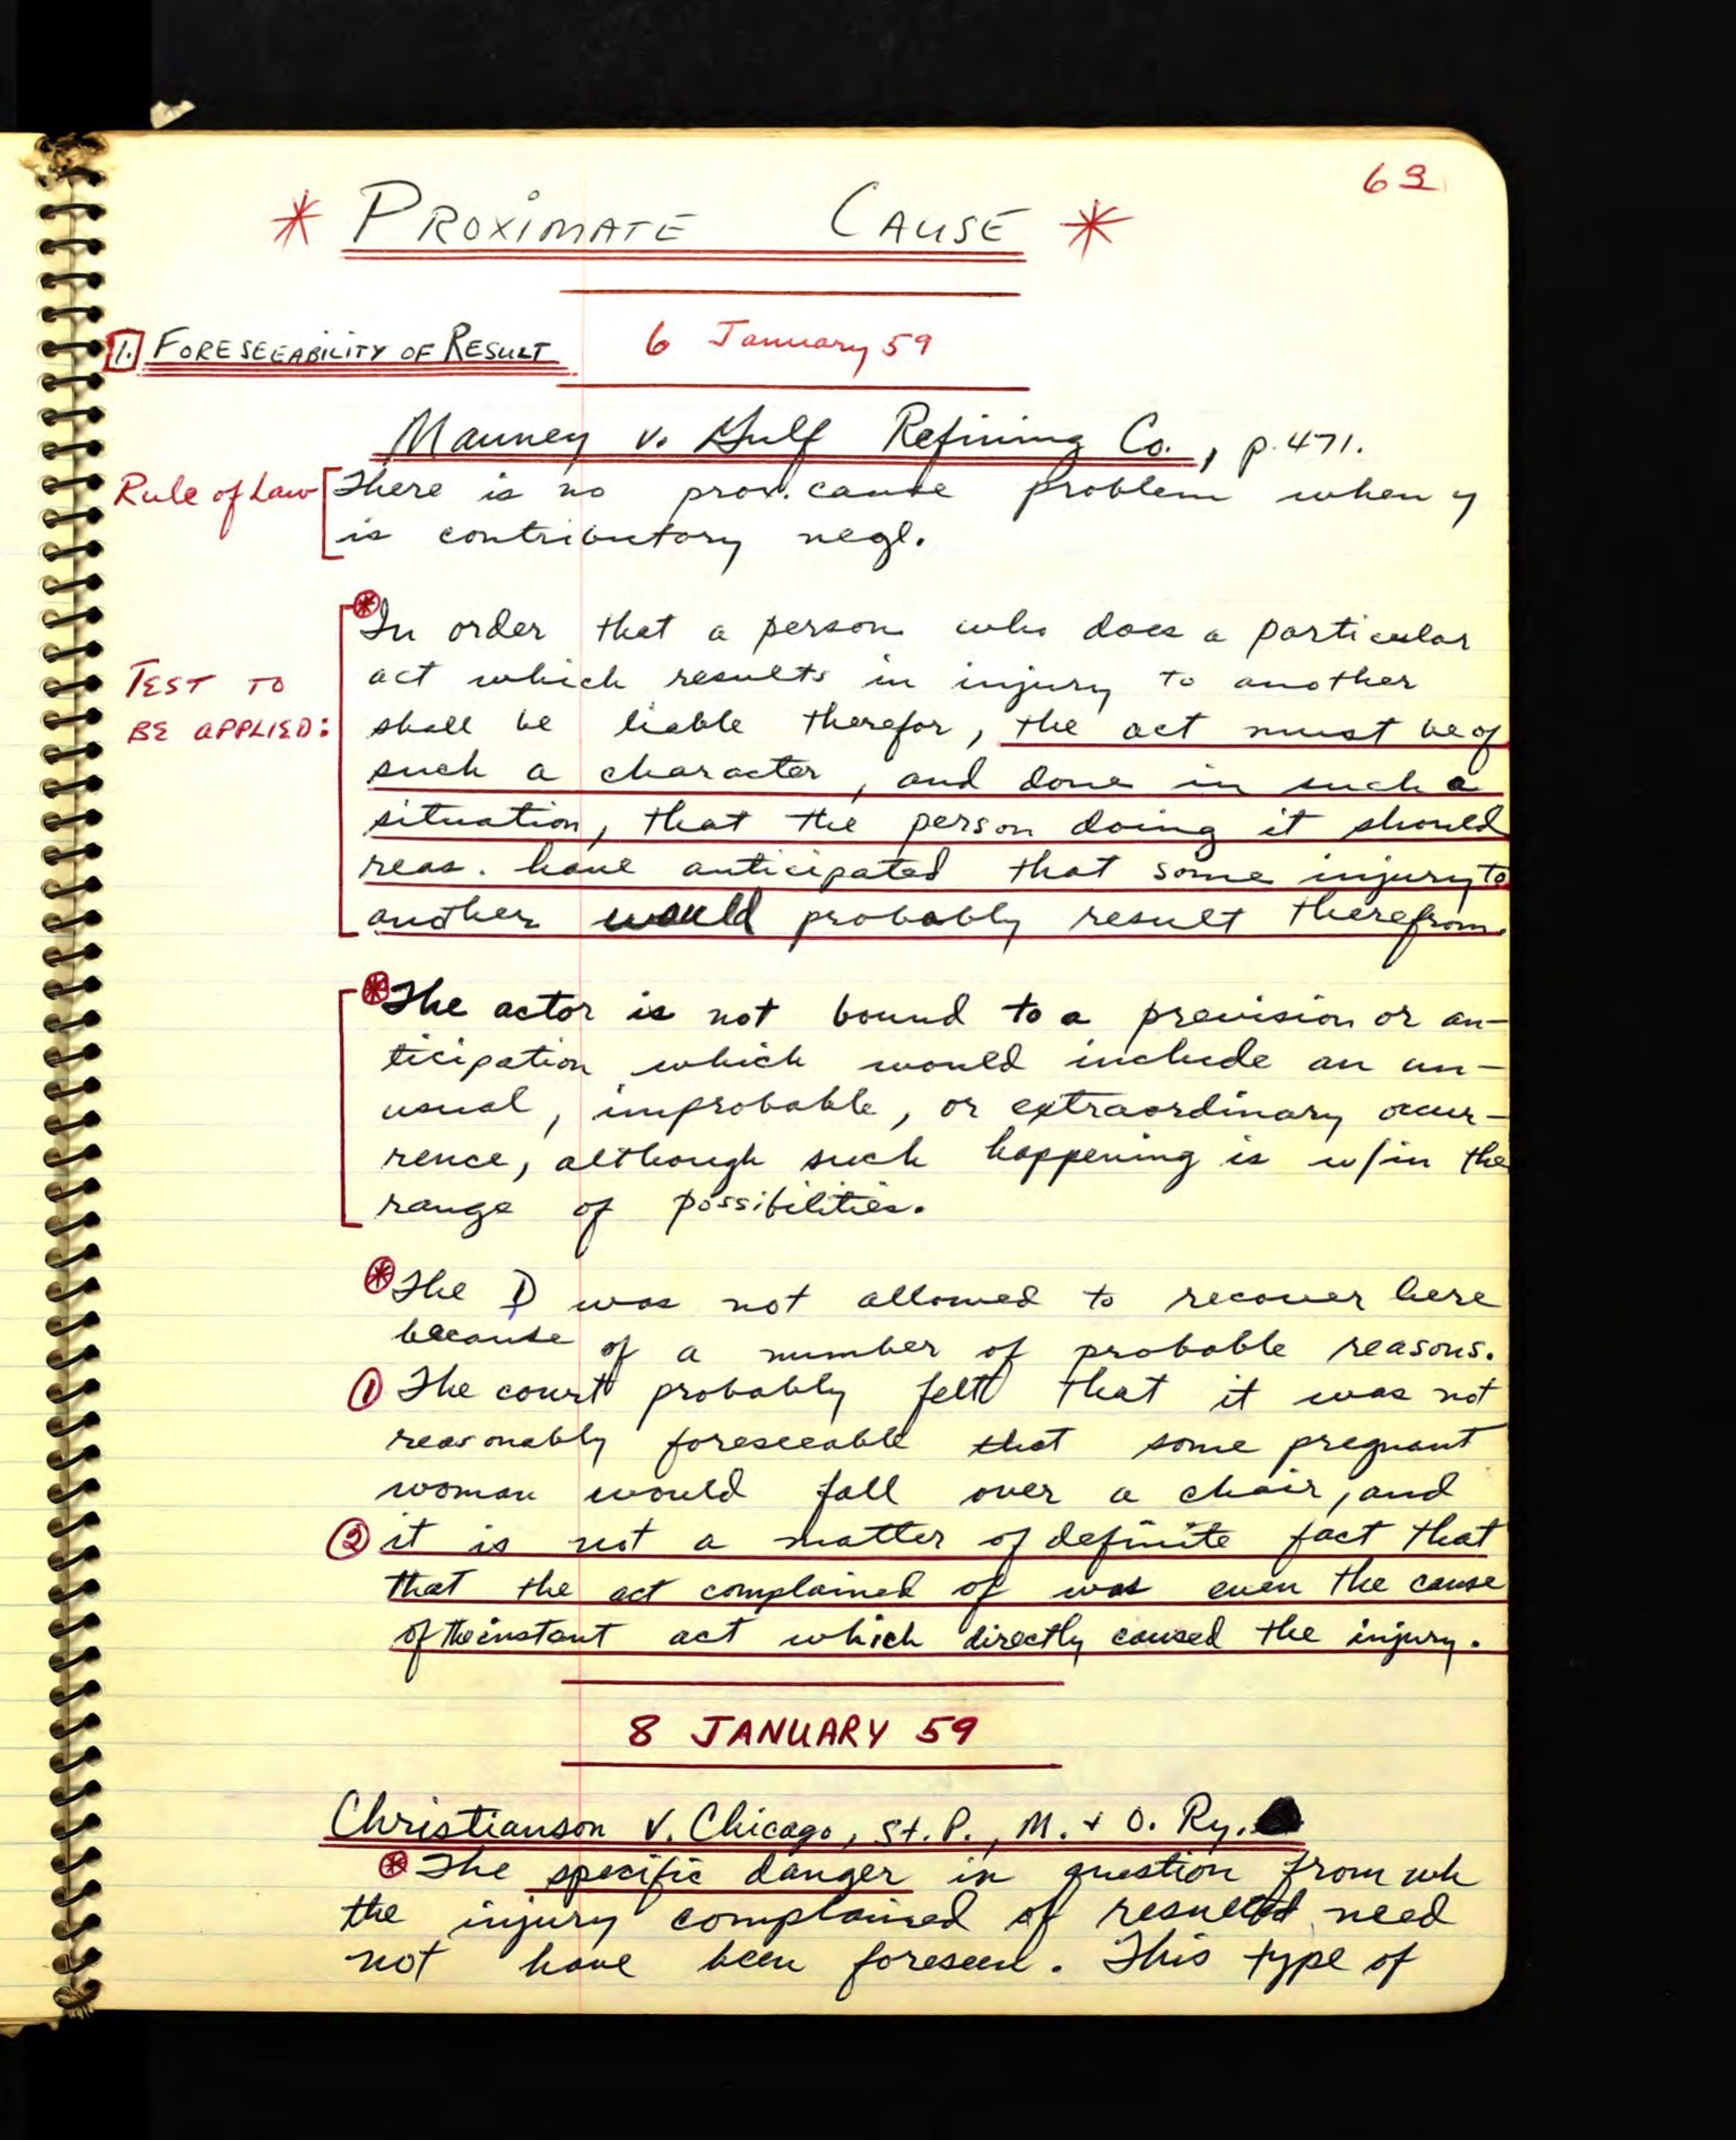 63
* PROXIMATE CAUSE *
1. FORESEEABILITY OF RESULT
6 January 59
Mauney v. Gulf Refining Co., p. 471.
Rule of Law
There is no prox. cause problem when y
is contributory negl.
TEST TO
BE APPLIED:
* In order that a person who does a particular
act which results in injury to another
shall be liable therefor, the act must be of
such a character, and done in such a
situation, that the person doing it should
reas. have anticipated that some injury to
another would probably result therefrom.
* The actor is not bound to a prevision or an-
ticipation which would include an un-
usual, improbable, or extraordinary occur-
rence, although such happening is w/in the
range of possibilities.
* The was not allowed to recover here
because of a number of probable reasons.
1 The court probably felt that it was not
reasonably foreseeable that some pregnant
woman would fall over a chair, and
2 it is not a matter of definite fact that
that the act complained of was even the cause
of the instant act which directly caused the injury.
8 JANUARY 59
Christianson v. Chicago, St. P., M. & O. Ry.
* The specific danger in question from wh
the injury complained of resulted need
not have been foreseen. This type of